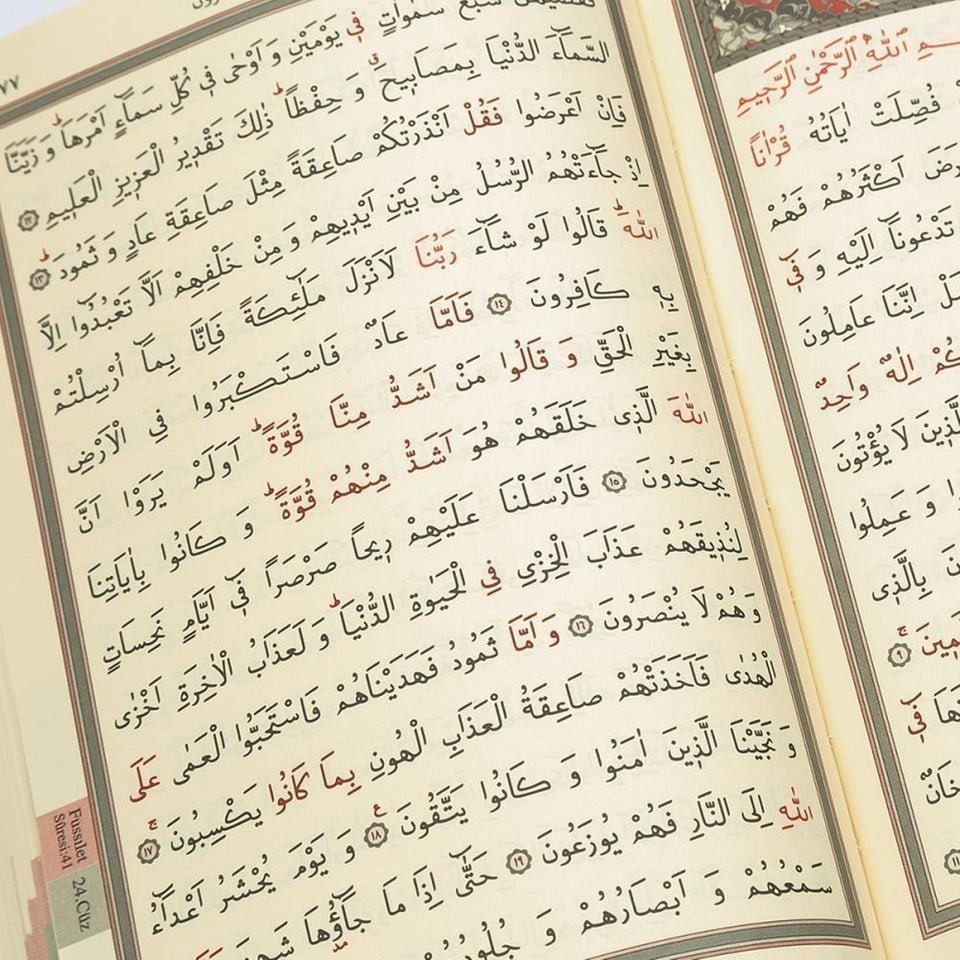 اللّٰهِ الرَّحْمٰنِ الرَّح۪يمِ
فُصِّلَتْ اٰيَاتُهُ قُرْاٰناً
اَكْثَرُهُمْ فَهُمْ
تَدْعُونَٓا اِلَيْهِ وَ ف۪ٓي
اِنَّنَا عَامِلُونَ
اِلٰهٌ وَاحِدٌ
لَا يُؤْتُونَ
وَ عَمِلُوا
بِالَّذ۪ي
٩
ف۪ي
٧٧
سَبْعَ سَمٰوَاتٍ ف۪ي يَوْمَيْنِ وَ اَوْحٰى ف۪ي كُلِّ سَمَٓاءٍ اَمْرَهَاۜ وَ زَيَّنَّا
السَّمَٓاءَ الدُّنْيَا بِمَصَاب۪يحَۗ وَ حِفْظاًۜ ذٰلِكَ تَقْد۪يرُ الْعَز۪يزِ الْعَل۪يمِ ١٢
فَاِنْ اَعْرَضُوا فَقُلْ اَنْذَرْتُكُمْ صَاعِقَةً مِثْلَ صَاعِقَةِ عَادٍ وَ ثَمُودَۜ ١٣
اِذْ جَٓاءَتْهُمُ الرُّسُلُ مِنْ بَيْنِ اَيْد۪يهِمْ وَ مِنْ خَلْفِهِمْ اَلَّا تَعْبُدُٓوا اِلَّا
اللّٰهَۜ قَالُوا لَوْ شَٓاءَ رَبُّنَا لَاَنْزَلَ مَلٰٓئِكَةً فَاِنَّا بِمَٓا اُرْسِلْتُمْ
بِه۪ كَافِرُونَ ١٤ فَاَمَّا عَادٌ فَاسْتَكْبَرُوا فِي الْاَرْضِ
بِغَيْرِ الْحَقِّ وَ قَالُوا مَنْ اَشَدُّ مِنَّا قُوَّةًۜ اَوَلَمْ يَرَوْا اَنَّ
اللّٰهَ الَّذ۪ي خَلَقَهُمْ هُوَ اَشَدُّ مِنْهُمْ قُوَّةًۜ وَ كَانُوا بِاٰيَاتِنَا
يَجْحَدُونَ ١٥ فَاَرْسَلْنَا عَلَيْهِمْ ر۪يحاً صَرْصَراً ف۪ٓي اَيَّامٍ نَحِسَاتٍ
لِنُذ۪يقَهُمْ عَذَابَ الْخِزْيِ فِي الْحَيٰوةِ الدُّنْيَاۜ وَ لَعَذَابُ الْاٰخِرَةِ اَخْزٰى
وَهُمْ لَا يُنْصَرُونَ ١٦ وَ اَمَّا ثَمُودُ فَهَدَيْنَاهُمْ فَاسْتَحَبُّوا الْعَمٰى عَلَى
الْهُدٰى فَاَخَذَتْهُمْ صَاعِقَةُ الْعَذَابِ الْهُونِ بِمَا كَانُوا يَكْسِبُونَۚ ١٧
وَ نَجَّيْنَا الَّذ۪ينَ اٰمَنُوا وَ كَانُوا يَتَّقُونَ ١٨ وَ يَوْمَ يُحْشَرُ اَعْدَٓاءُ
اللّٰهِ اِلَى النَّارِ فَهُمْ يُوزَعُونَ ١٩ حَتّٰٓى اِذَا مَا جَٓاؤُ۫هَا شَهِدَ
سَمْعُهُمْ وَ اَبْصَارُهُمْ وَ
Fussılet
Sûresi:41
24.Cüz